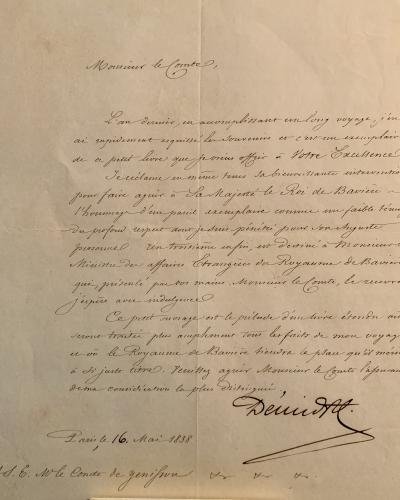 Monsieur le Comte,
L'an dernier, en accomplissant un long voyage, j'en
ai rapidement esquissé les souvenirs et c'est un exemplaire
de ce petit livre que je viens offrir à Votre Excellence
Je réclame en même tems sa bienveillante intervention
pour faire agréer à Sa Majesté le Roi de Bavière
l'hommage d'un pareil exemplaire comme un faible témoi
du profond respect dont je suis pénétré pour son Auguste
personnel un troisième enfin, est destiné à Monsieur
Ministre des affaires Etrangères du Royaume de Bavière
qui, présenté par vos mains, Monsieur le Comte, le recevra
j'espère avec indulgence
Ce petit ouvrage est le prélude d'un livre étendu où
seront traités plus amplement tous les faits de mon voyage
et où le Royaume de Bavière tiendra la place qu'il mérite
à si juste titre. Veuillez agréer Monsieur le Comte l'assurance
de ma considération la plus distinguée
Démidoff.
Paris, le 16. Mai 1838
A S. E. Mr le Comte de Jenisson